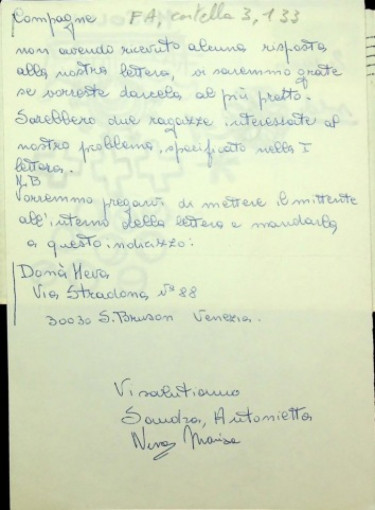 Compagne FA, cartella 3, 133
non avendo ricevuto alcuna risposta
alla nostra lettera, vi saremmo grate
se vorreste darcela al più presto.
Sarebbero due ragazze interessate al
nostro problema, specificato nella I
lettera.
N.B
Vorremmo pregarvi di mettere il mittente
all'interno della lettera e mandarla
a questo indirizzo:
Donà Neva
Via Stradona n° 88
30030 S. Bruson Venezia.
Vi salutiamo
Sandra, Antonietta
Neva Marisa